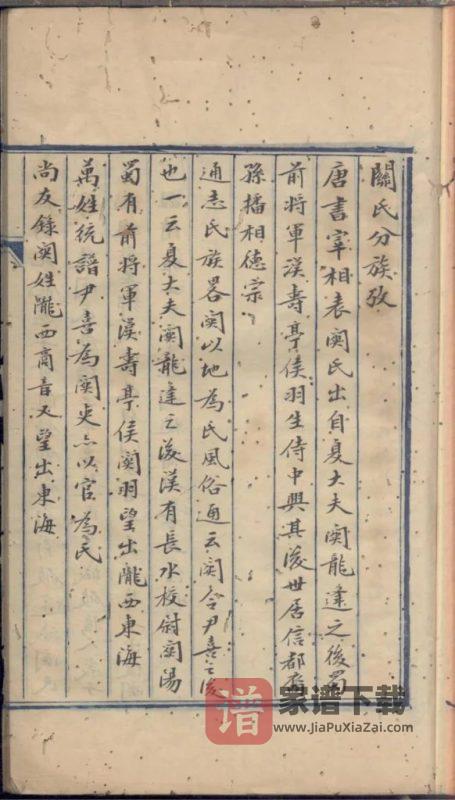 關氏分族攷
唐書宰相表関氏出自夏大夫関龍逄之後蜀
前將軍漢壽亭侯羽生侍中興其後世居信都裔
孫播相德宗
通志氏族畧関以地為氏風俗通云関令尹喜之後
也一云夏大夫関龍逄之後漢有長水校尉関陽
蜀有前將軍漢壽亭侯関羽望出隴西東海
萬姓統譜尹喜為関吏亦以官為氏
尚友錄関姓隴西商音又望出東海
谱 家谱下载
www.JiaPuXiaZai.com